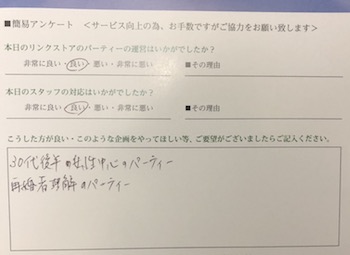 ■簡易アンケート <サービス向上の為、お手数ですがご協力をお願い致します>
本日のリンクストアのパーティーの運営はいかがでしたか?
非常に良い・良い・悪い・非常に悪い ■その理由
本日のスタッフの対応はいかがでしたか?
非常に良い・良い・悪い・非常に悪い ■その理由
こうした方が良い・このような企画をやってほしい等、ご要望がございましたらご記入ください。
30代後半の女性中心のパーティー
再婚者理解のパーティー